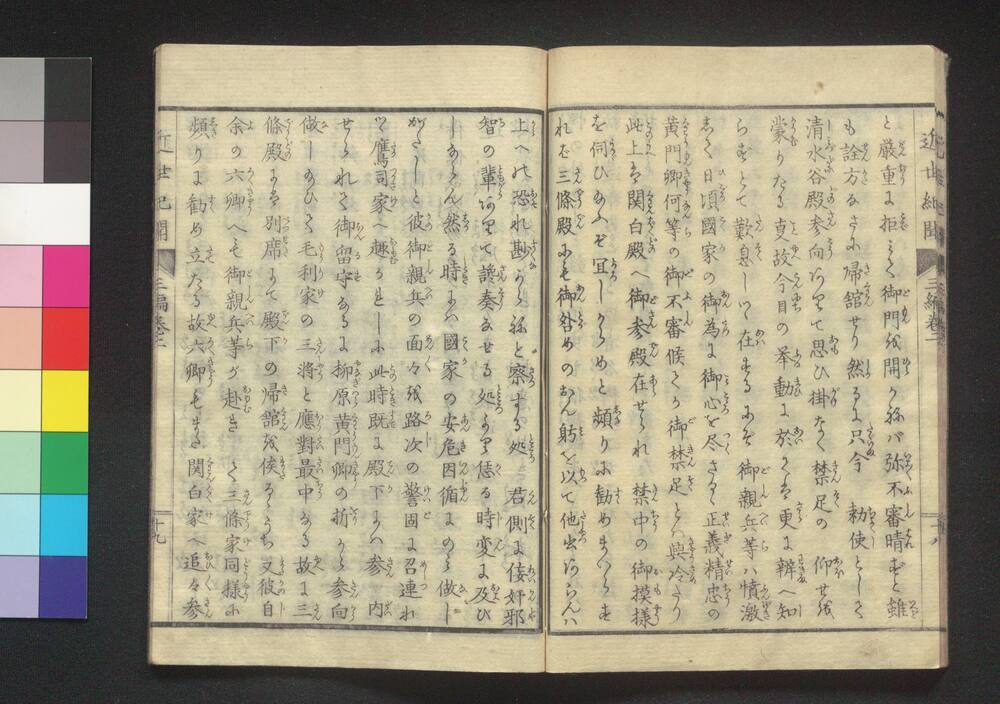 と厳重に拒みて御門を開かねバ弥不審晴ずと雖
も詮方なさに帰舘せり然るに只今 勅使として
清水谷殿参向ありて思ひ掛なく禁足の 仰せを
蒙りたる 故今日の挙動に於ては更に辨へ知
らずとて歎息して在するにぞ御親兵等ハ憤激
して日頃國家の御為に御心を尽させ 正義精忠の
黄門卿何等の御不審候てか御禁足とハ興冷たり
此上は関白殿へ御参殿在せられ 禁中の御摸様
を伺ひ給ふぞ宜しからめと頻りに勧めまゐらせ
れど三條殿にも御咎めのおん躬を以て他出あらんハ
上への恐れ尠からねと察する処 君側に侫奸邪
智の輩ありて讒奏なせる処より係る時変に及び
しならん然る時ハ國家の安危因循にのみ做し
がたしと彼御親兵の面々を路次の警固に召連れ
て鷹司家へ趣かれしに此時既に殿下にハ参 内
せられて御留守なるに柳原黄門卿の折から参向
做し給ひて毛利家の三将と應對最中なる故に三
條殿にハ別席にて殿下の帰舘を俟るゝうち又彼自
余の六卿へも御親兵等が赴き て三條家同様に
頻りに勧め立たる故六卿もまた関白家へ追々参
近世紀聞
三編巻二
十八
近世紀聞
三編巻二
十九